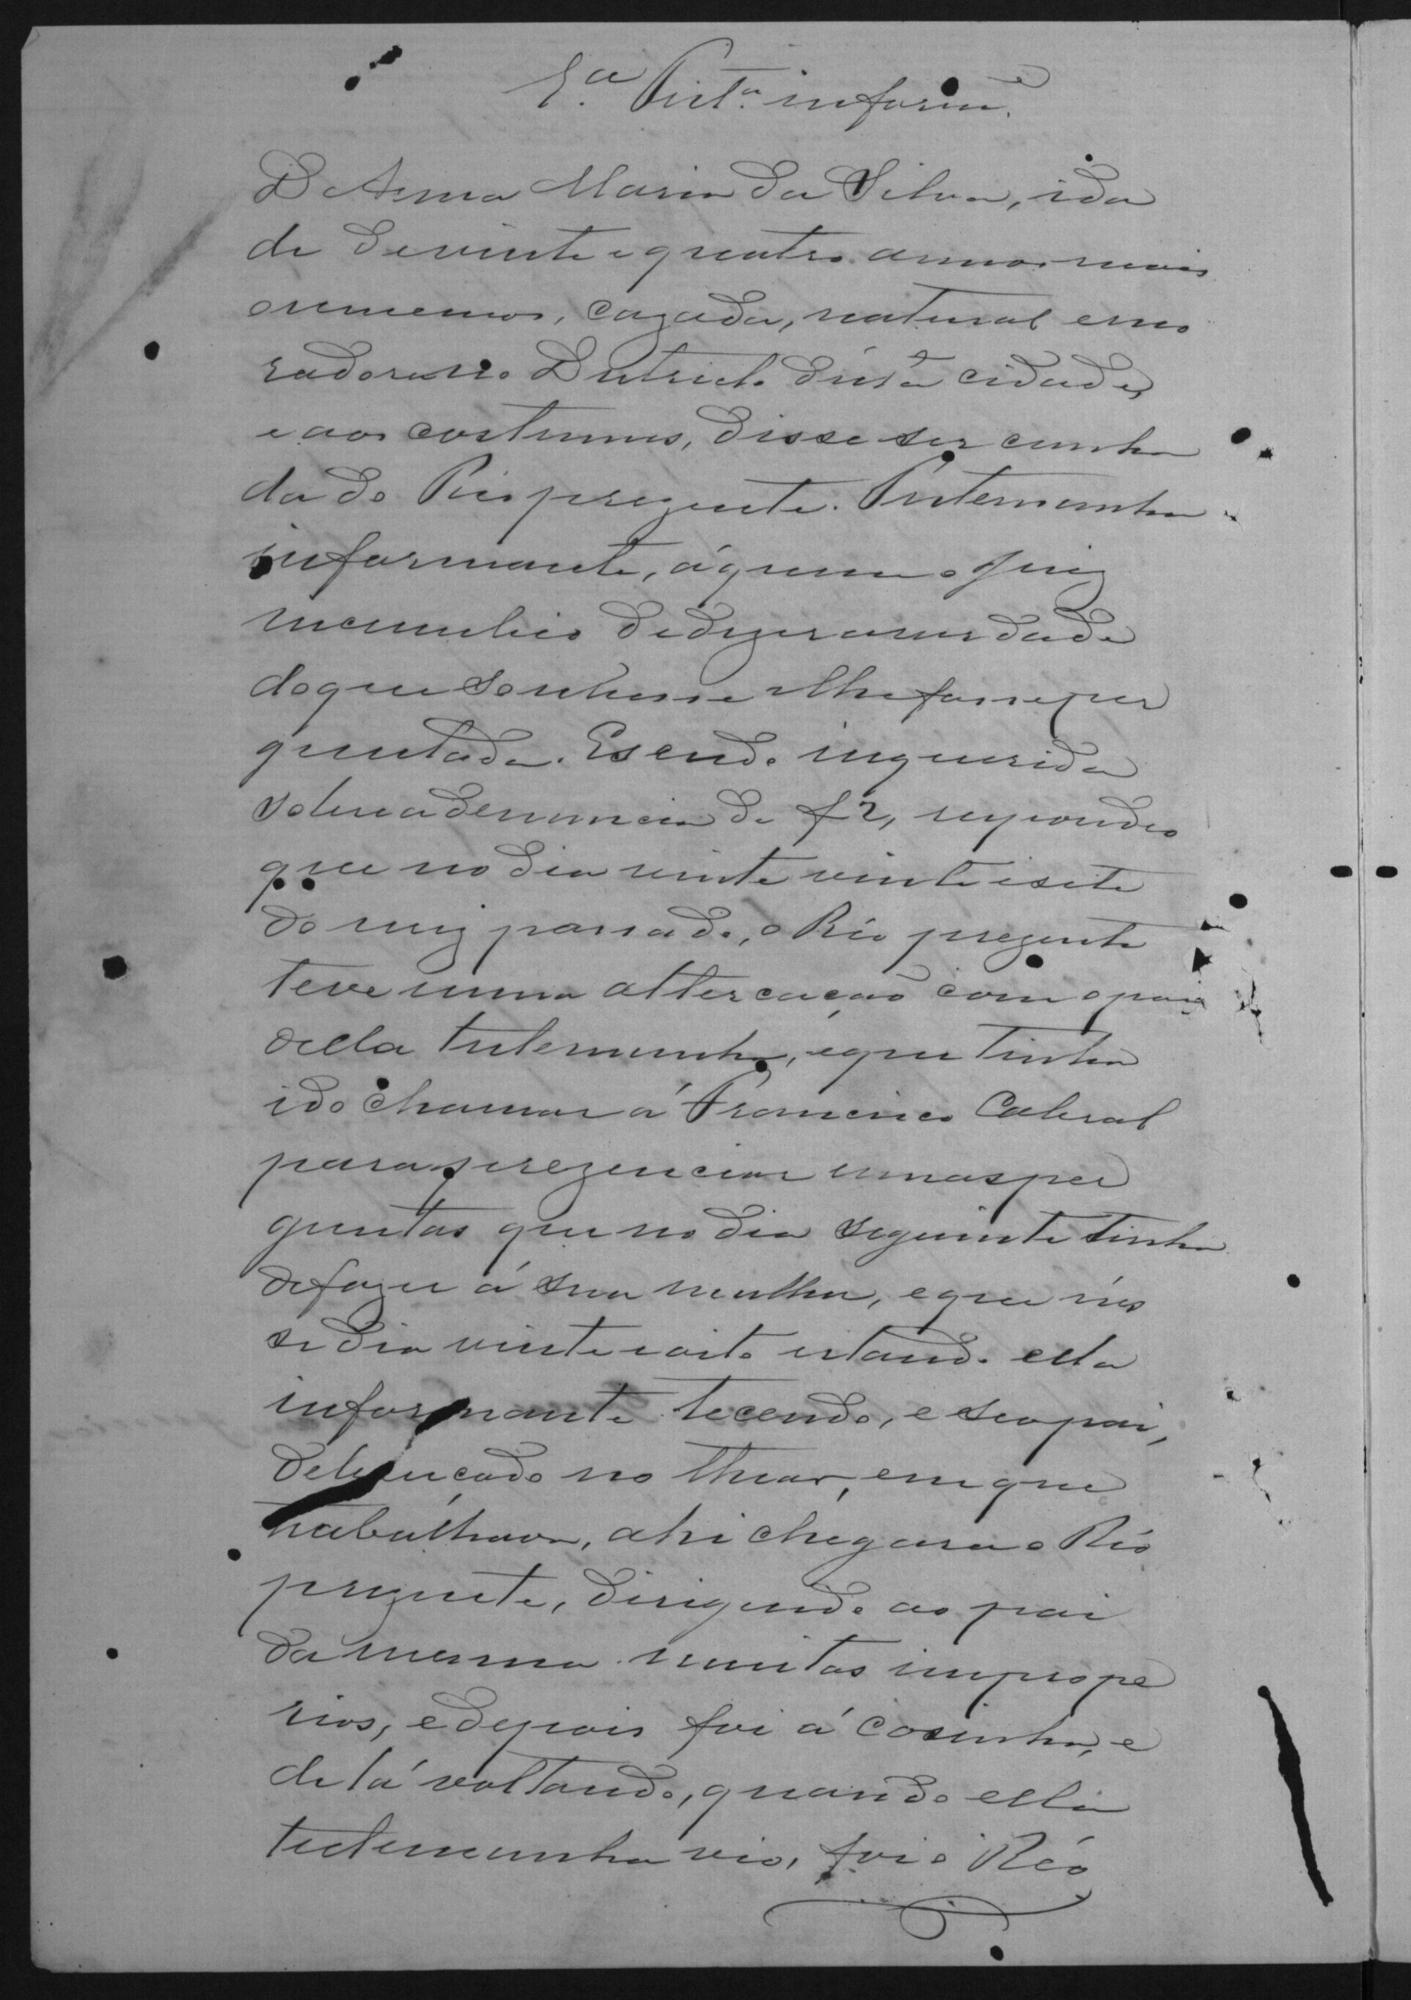 1.ª Test.ª inform.e
D. Anna Maria da Silva, ida
de de vinte e quatro annos mais
ou menos, cazada, natural e mo
radora no Districto d'ésta cidade,
e aos costumes, disse ser cunha
da do Réo prezente. Testemunha
informante, á quem o Juiz
incumbio de dizer a verdade
do que soubesse e lhe fosse per
guntada. E sendo inquerida
sobre a denuncia de f 2, respondeo
que no dia vinte vinte e sete
do mez passado, o Réo prezente
teve uma altercação com o pai
della testemunha, e que tinha
ido chamar á Francisco Cabral
para prezenciar umas per
guntas que no dia seguinte tinha
de fazer á sua mulher, e que nés
se dia vinte e oito estando ella
informante tecendo, e seo pai,
debruçado no thear, em que
trabalhava, ahi chegara o Réo
prezente, dirigindo ao pai
da mesma muitos imprope
rios, e depois foi á cosinha, e
de lá voltando, quando ella
testemunha vio, foi o Réo